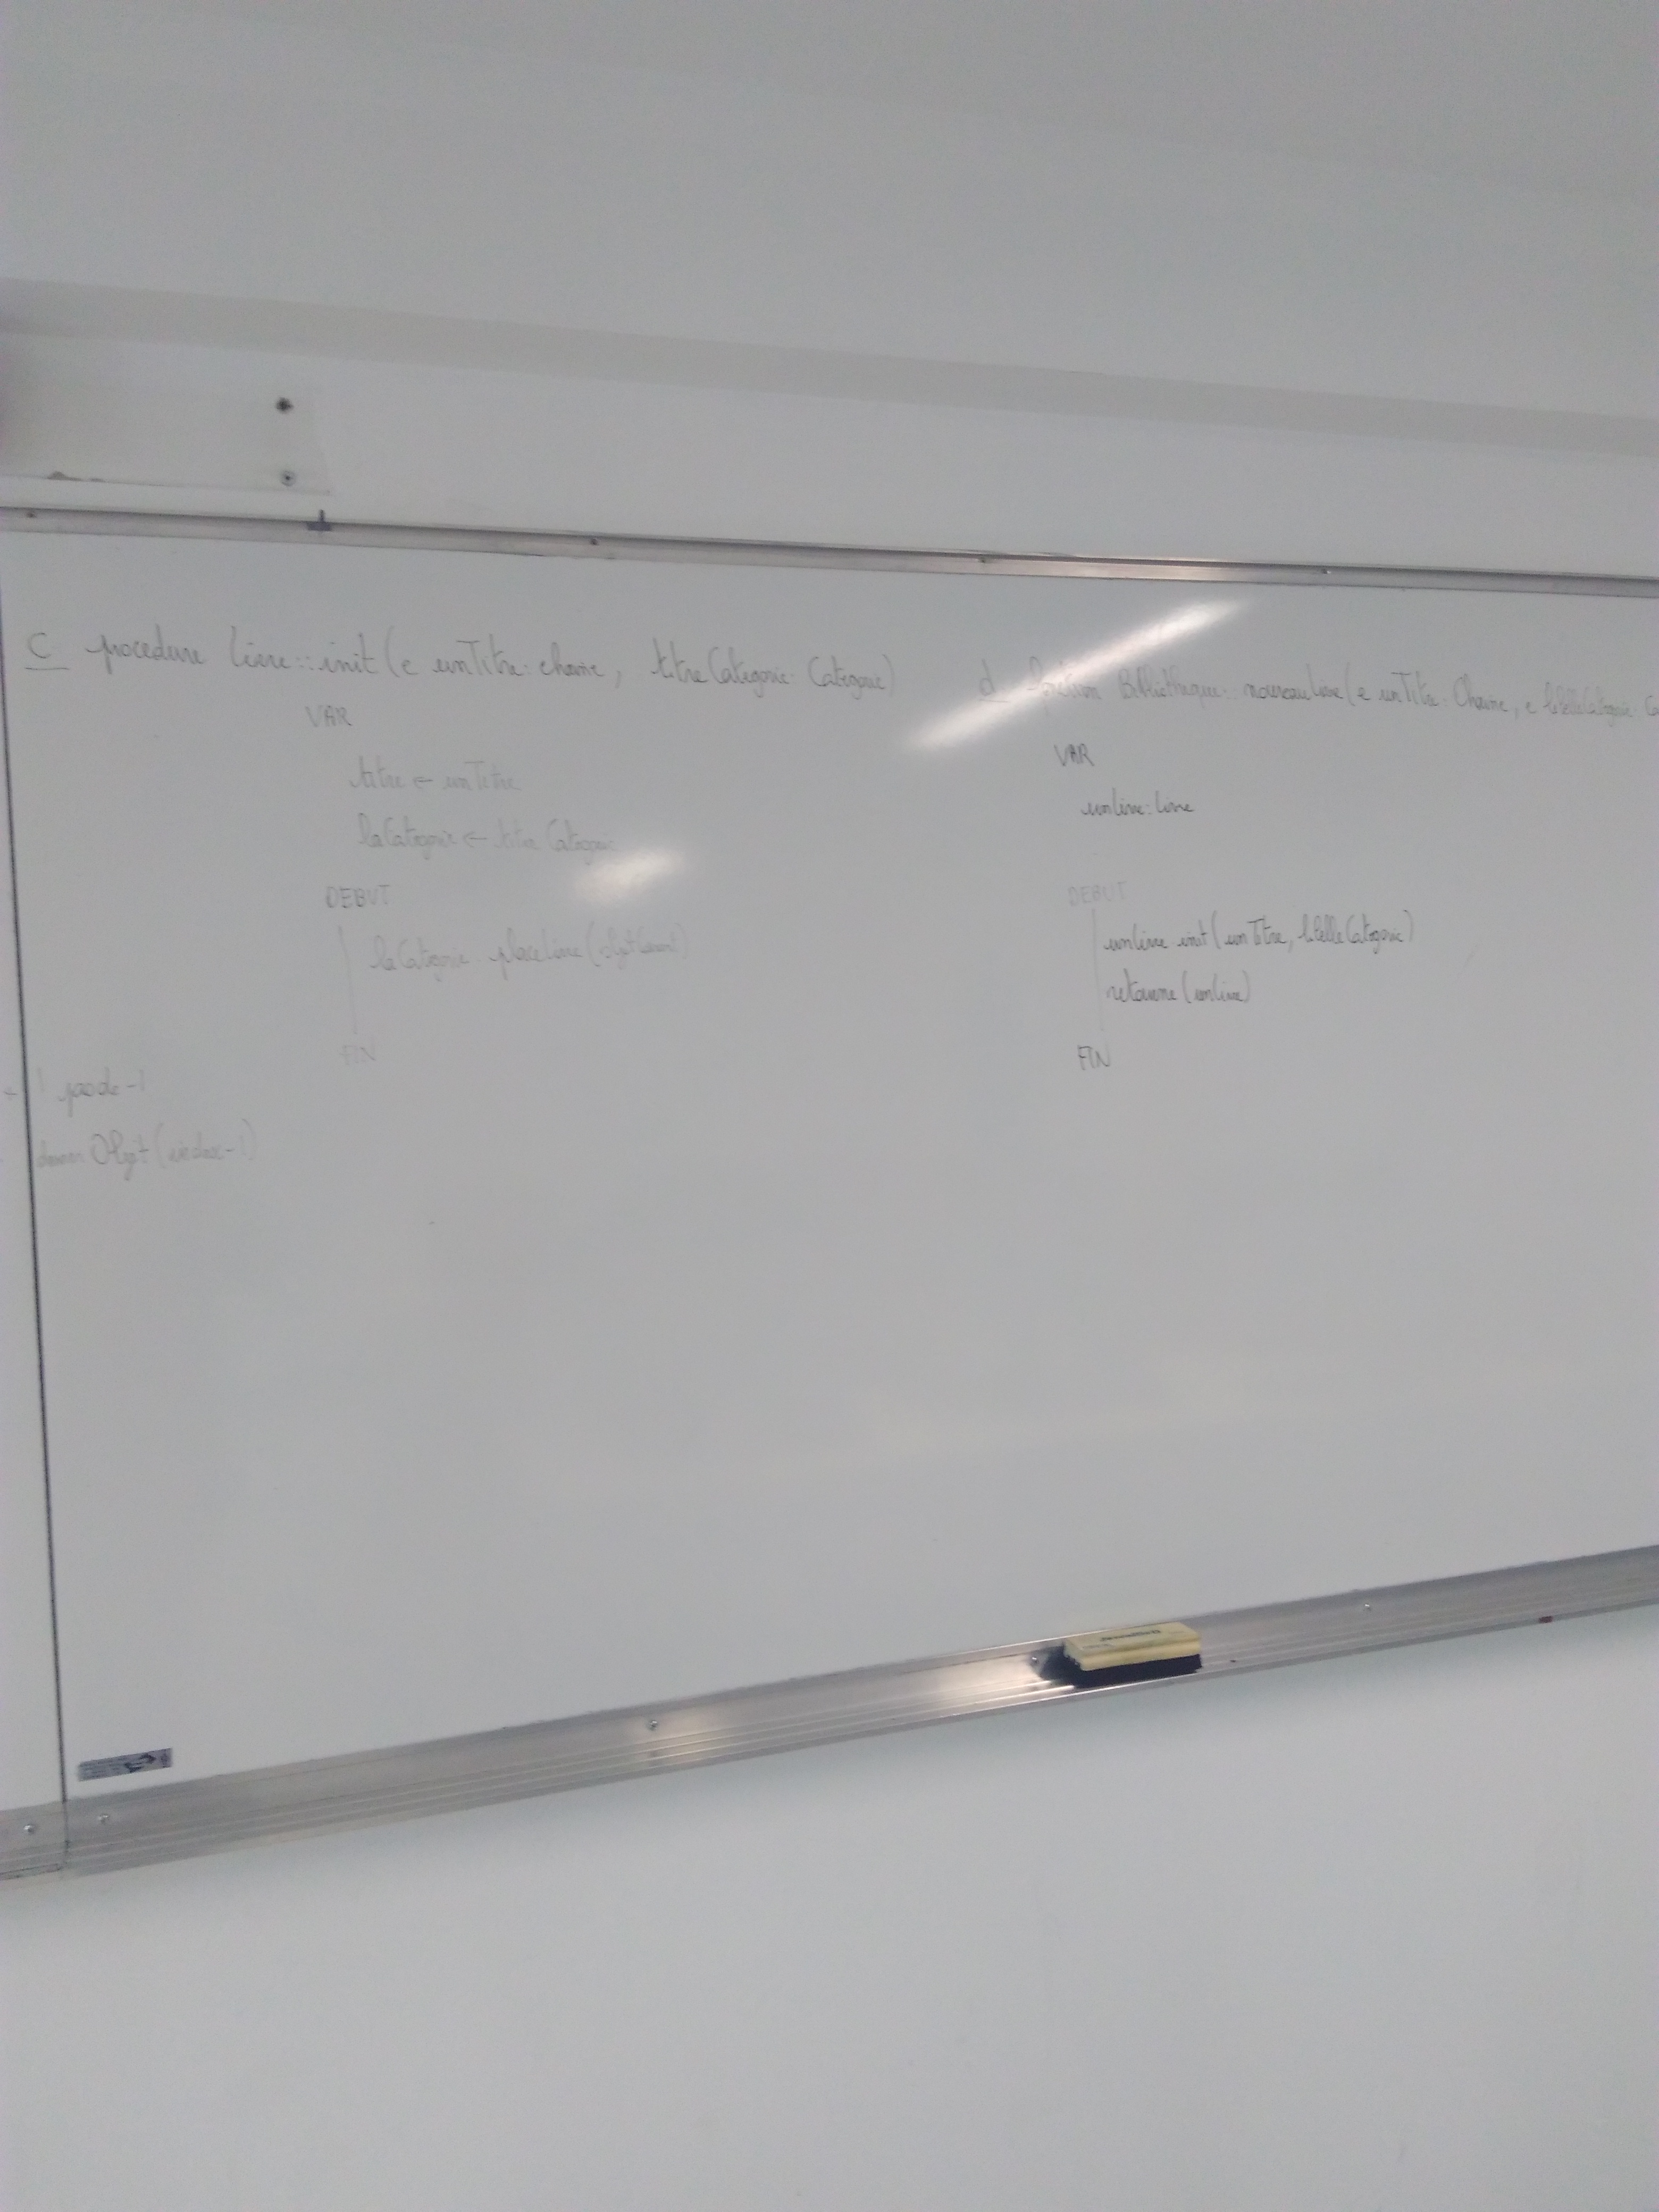 c procedure Livre::init (e unTitre: chaine, titreCategorie: Categorie)
VAR
titre ← unTitre
laCategorie ← titre Categorie
DEBUT
laCategorie.placeLivre(objetCourant)
FIN
d fonction Bibliothèque:: nouveauLivre (e unTitre: Chaine, e libelleCatégorie: Ca
VAR
unlivre: livre
DEBUT
unlivre.init (unTitre, libelleCategorie)
retourne (unlivre)
FIN
Objet (index-1)